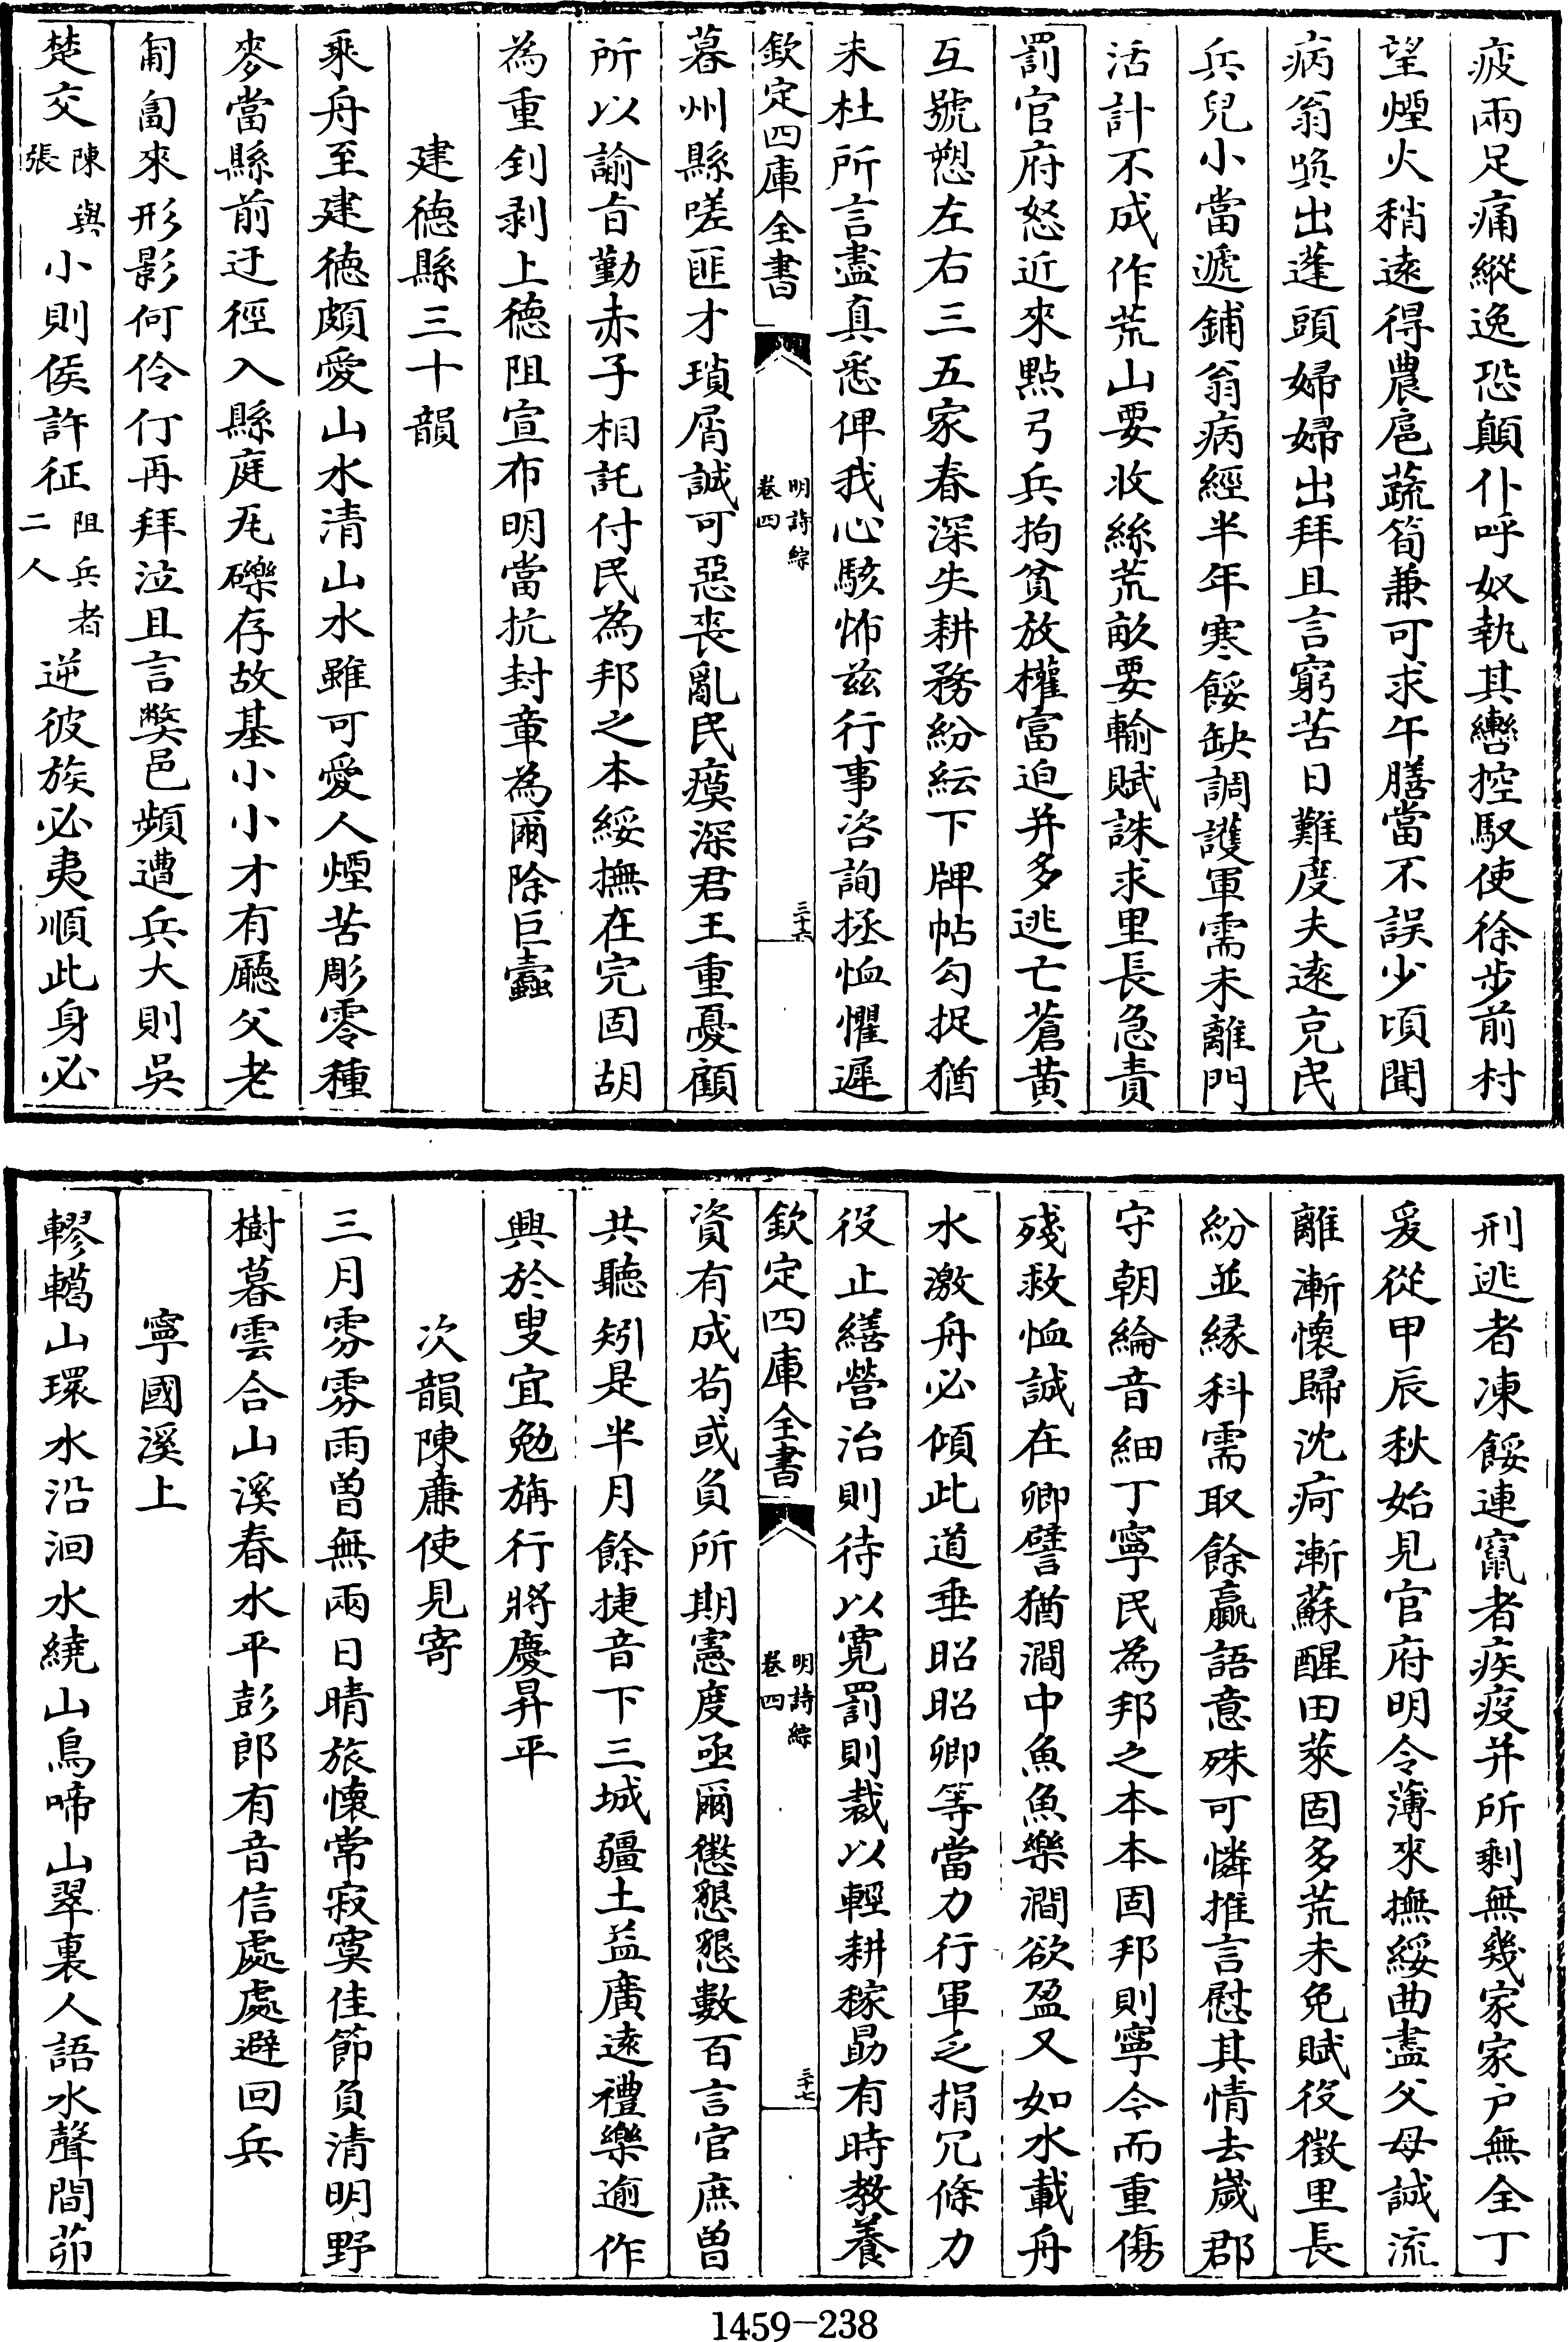 疲兩足痛縱逸恐顛仆呼奴執其轡控馭使徐步前村
望煙火稍遠得農扈蔬筍兼可求午膳當不誤少頃聞
病翁喚出蓬頭婦婦出拜且言窮苦日難度夫遠充民
兵兒小當遞鋪翁病經半年寒餒缺調護軍需未離門
活計不成作荒山要收絲荒畝要輸賦誅求里長急責
罰官府怒近來點弓兵拘貧放權富迫并多逃亡蒼黄
互號愬左右三五家春深失耕務紛紜下牌帖勾捉猶
未杜所言盡真悉俾我心駭怖兹行事咨詢拯恤懼遲
欽定四庫全書
明詩綜
卷四
三十六
暮州縣嗟匪才瑣屑誠可惡喪亂民瘼深君王重憂顧
所以諭旨勤赤子相託付民為邦之本綏撫在完固胡
為重釗剥上德阻宣布明當抗封章為爾除巨蠧
建德縣三十韻
乘舟至建德頗愛山水清山水雖可愛人煙苦彫零種
麥當縣前迂徑入縣庭瓦礫存故基小小才有廳父老
匍匐來形影何伶仃再拜泣且言獘邑頻遭兵大則吳
楚交陳與張小則侯許征阻兵者二人逆彼族必夷順此身必
刑逃者凍餒連竄者疾疫并所剩無幾家家户無全丁
爰從甲辰秋始見官府明令薄來撫綏曲盡父母誠流
離漸懷歸沈疴漸蘇醒田萊固多荒未免賦役徵里長
紛並緣科需取餘贏語意殊可憐推言慰其情去歲郡
守朝綸音細丁寧民為邦之本本固邦則寧今而重傷
殘救恤誠在卿譬猶澗中魚魚樂澗欲盈又如水載舟
水激舟必傾此道垂昭昭卿等當力行軍乏捐冗條力
役止繕營治則待以寛罰則裁以輕耕稼勗有時教養
欽定四庫全書
明詩綜
卷四
三十七
資有成苟或負所期憲度亟爾懲懇懇數百言官庶曽
共聽矧是半月餘捷音下三城疆土益廣遠禮樂逾作
興於叟宜勉旃行將慶昇平
次韻陳亷使見寄
三月雰雰雨曽無兩日晴旅懷常寂寞佳節負清明野
樹暮雲合山溪春水平彭郎有音信處處避回兵
寧國溪上
轇轕山環水沿洄水繞山鳥啼山翠裏人語水聲間茆
1459-238